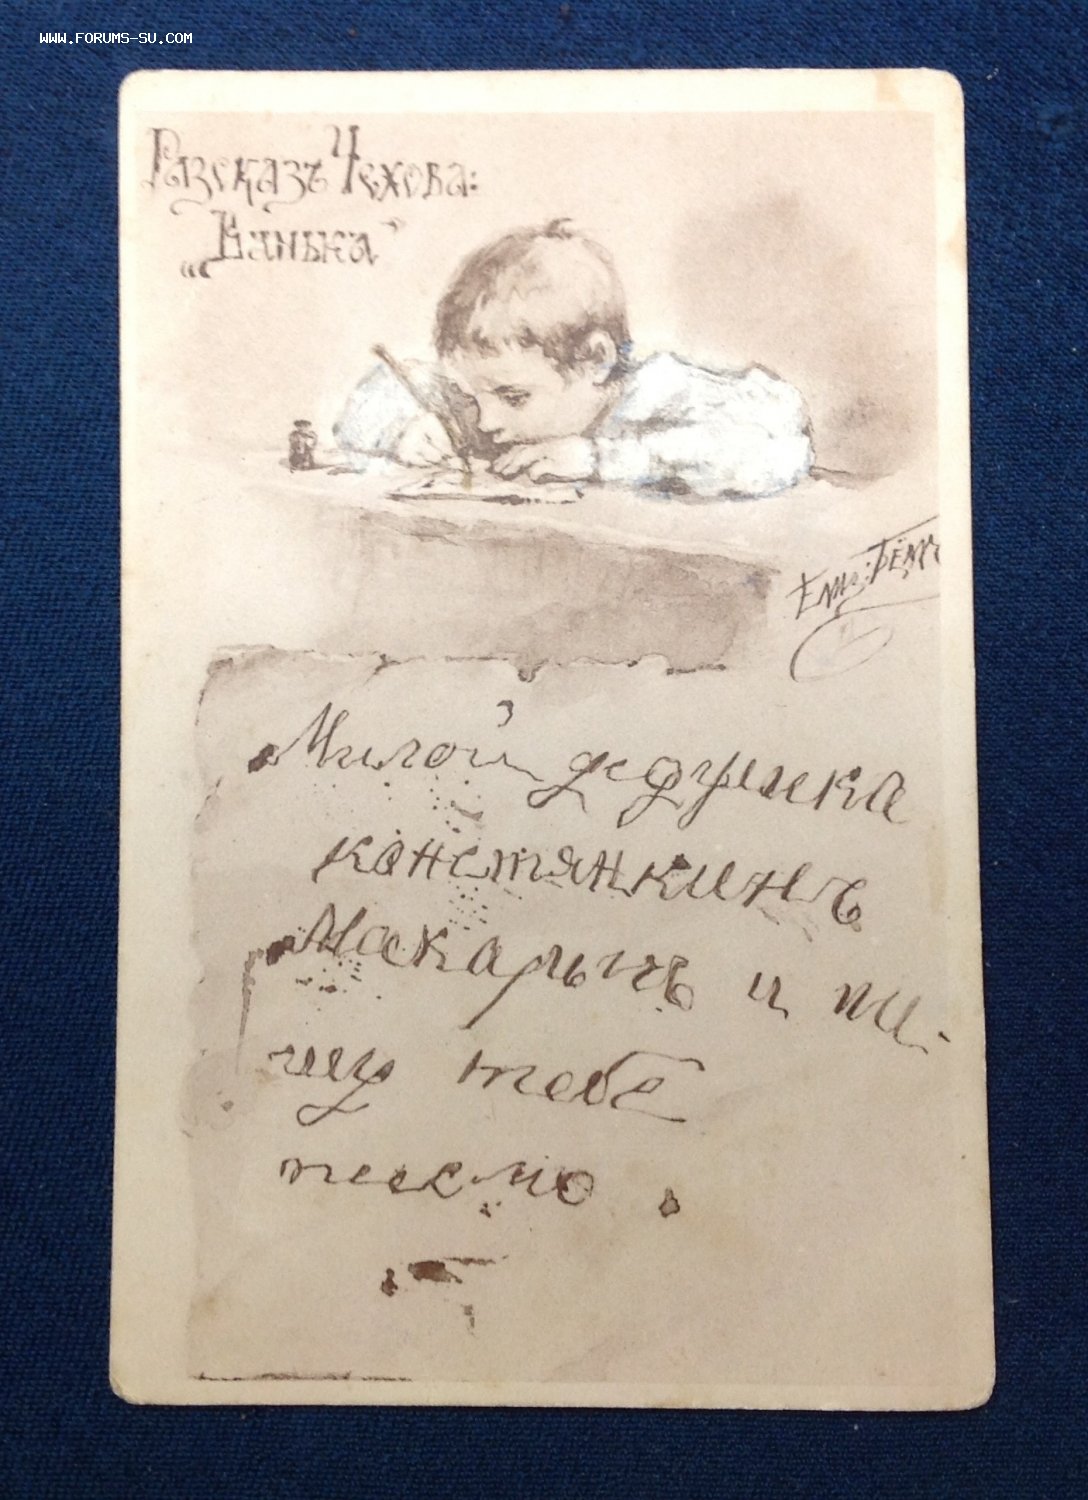 WWW.FORUMS-SU.COM
Разсказъ Чехова:
„Ванька”
Елиз. Бёмъ
Милой дедушка
констянкинъ
Макарычъ и пи-
шу тебѣ
писмо.